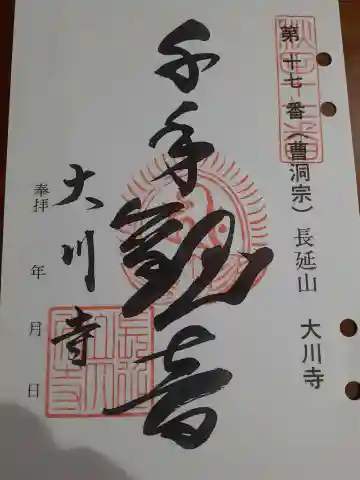 第十七番(曹洞宗)長延山 大川寺
千手観音
大川寺
奉拝 年 月 日